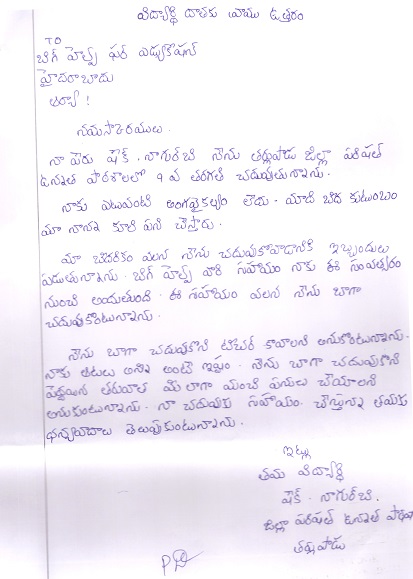 విద్యార్థి దాతకు వ్రాయు ఉత్తరం
TO
బిగ్ హెల్ప్ ఫర్ ఎడ్యుకేషన్
హైదరాబాదు
నమస్కారములు.
నా పేరు షేక్. నాగుర్‌బి నేను తర్లుపాడు జిల్లా పరిషత్
ఉన్నత పాఠశాలలో 9 వ తరగతి చదువుతున్నాను.
నాకు ఎటువంటి అంగవైకల్యం లేదు. మాది బీద కుటుంబం
మా నాన్న కూలి పని చేస్తారు.
మా బీదరికం వలన నేను చదువుకోవడానికి ఇబ్బందులు
పడుతున్నాను. బిగ్ హెల్ప్ వారి సహాయం నాకు ఈ సంవత్సరం
నుంచి అందుతుంది. ఈ సహాయం వలన నేను బాగా
చదువుకొంటున్నాను.
నేను బాగా చదువుకొని టీచర్ కావాలని అనుకొంటున్నాను.
నాకు ఆటలు అన్నా అంటే ఇష్టం. నేను బాగా చదువుకొని
పెద్దయిన తరువాత మీ లాగా మంచి పనులు చేయాలని
అనుకుంటున్నాను. నా చదువుకు సహాయం చేస్తున్న
ధన్యవాదాలు తెలుపుకుంటున్నాను.
ఇట్లు
తమ విద్యార్థి
షేక్. నాగుర్‌బి.
జిల్లా పరిషత్ ఉన్నత
తర్లుపాడు